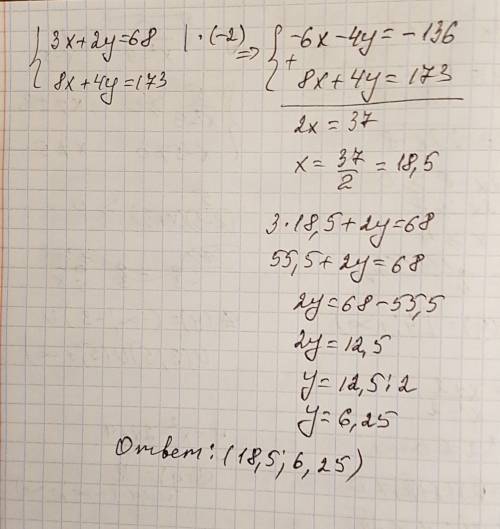 {3x+2y=68 | · (-2) => {-6x-4y=-136
8x+4y=173 + 8x+4y=173
2x=37
x=37/2=18,5
3·18,5+2y=68
55,5+2y=68
2y=68-55,5
2y=12,5
y=12,5:2
y=6,25
Ответ: (18,5; 6,25)